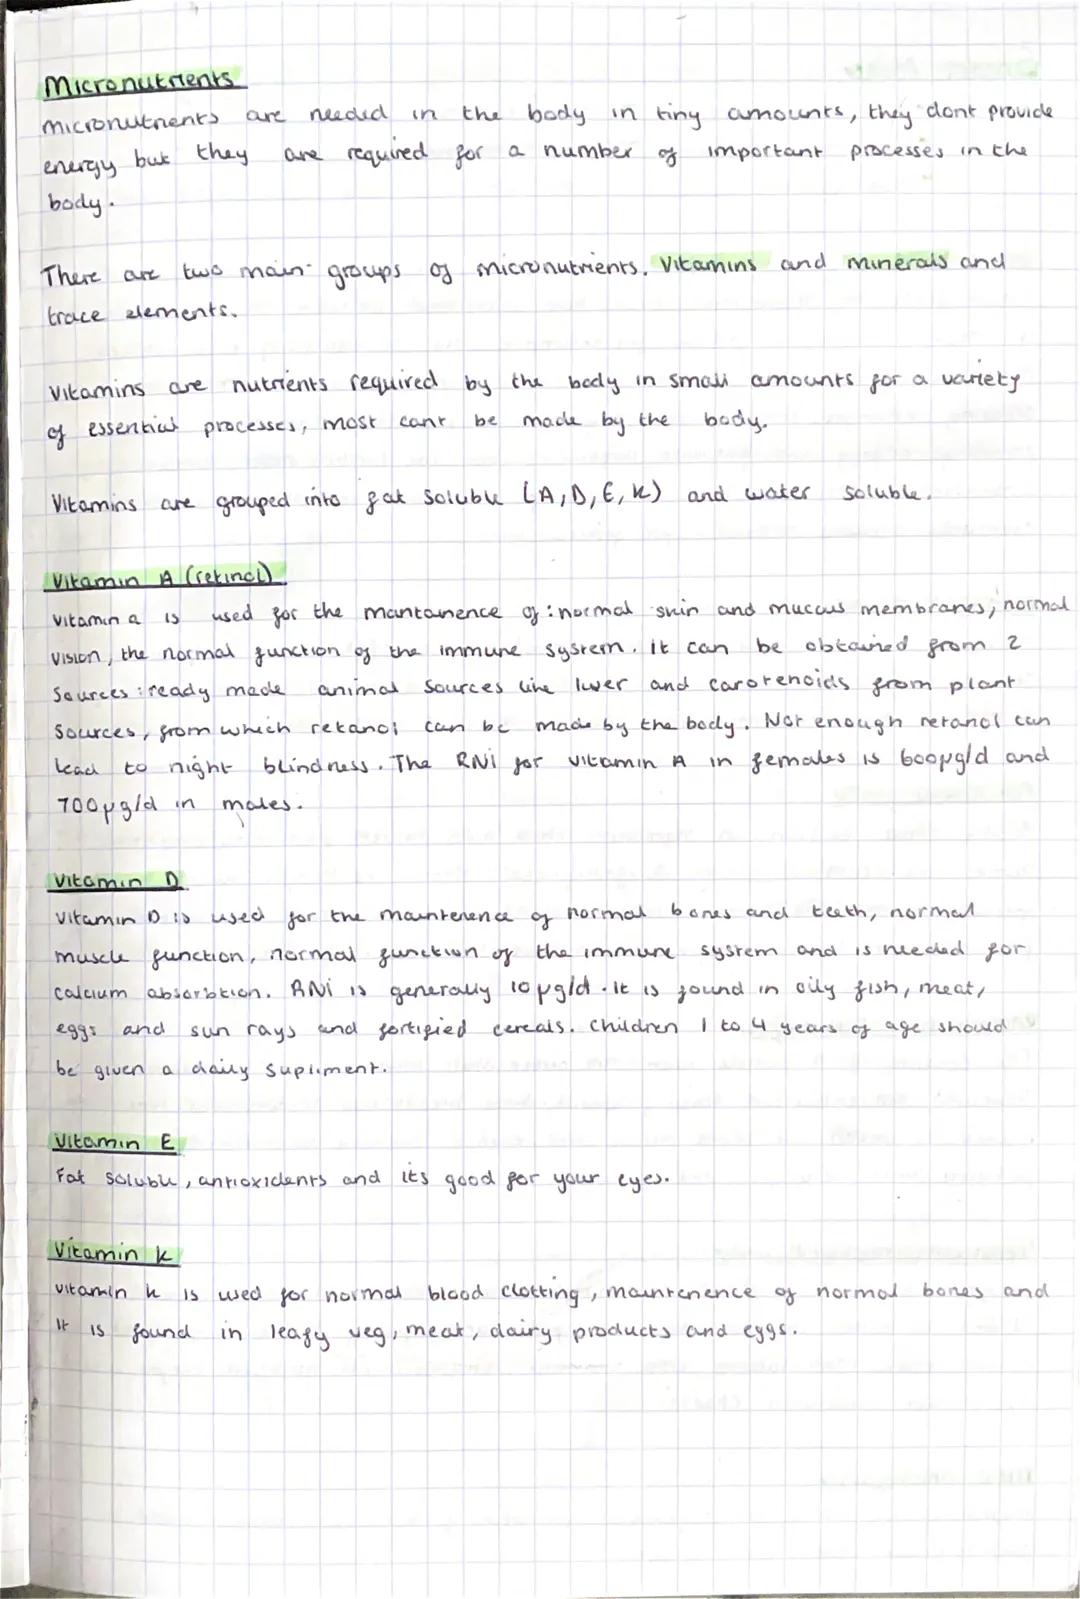 Micronutrients
micronutrients are needed in the body in tiny amounts, they dont provide
energy but they are required for a number of important processes in the
body.
There are two main groups of micronutrients. Vitamins and minerals and
trace elements.
Vitamins are nutrients required by the body in small amounts for a variety
of essential processes, most cant be made by the body.
Vitamins are grouped into fat soluble (A, D, E, K) and water soluble.
Vitamin A (retinol)
vitamin a is used for the mantanence of : normal skin and mucous membranes, normal
vision, the normal function of the immune system. it can be obtained from 2
Sources : ready made animal sources like liver and carotenoids from plant
sources, from which retanol can be made by the body. Not enough retanol can
lead to night blindness. The RNI for vitamin A in females is 600µg/d and
700µg/d in males.
Vitamin D
Vitamin D is used for the maintenence of normal bones and teeth, normal
muscle function, normal function of the immune system and is needed for
calcium absorbtion. RNI is generally 10µg/d. It is found in oily fish, meat,
eggs and sun rays and fortified cereals. Children 1 to 4 years of age should
be given a daily supliment.
Vitamin E
Fat soluble, antioxidents and its good for your eyes.
Vitamin K
vitamin k is used for normal blood clotting, maintenence of normal bones and
It is found in leafy veg, meat, dairy products and eggs.